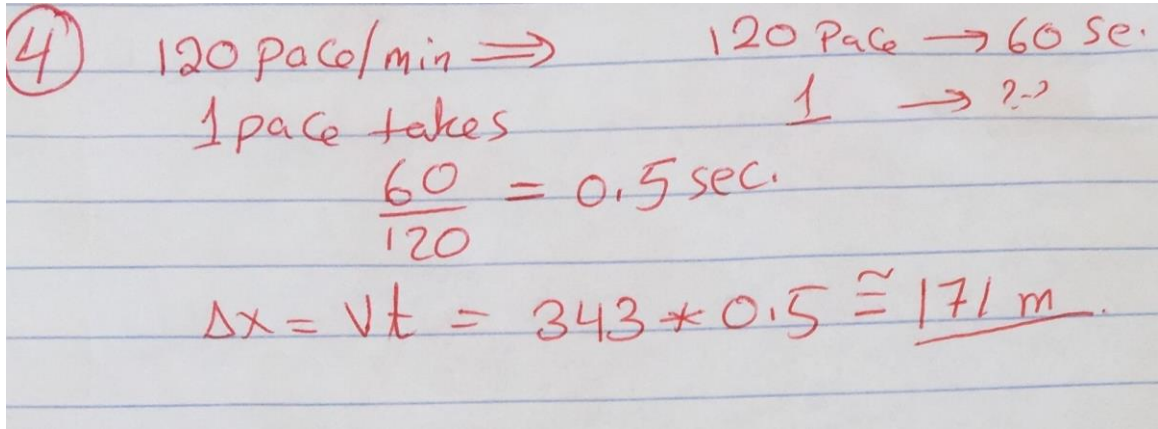 ④ 120 pace/min ⟹ 120 Pace → 60 Se.
1 pace takes 1 → ??
60/120 = 0.5 sec.
Δx = Vt = 343 * 0.5 ≅ 171 m.